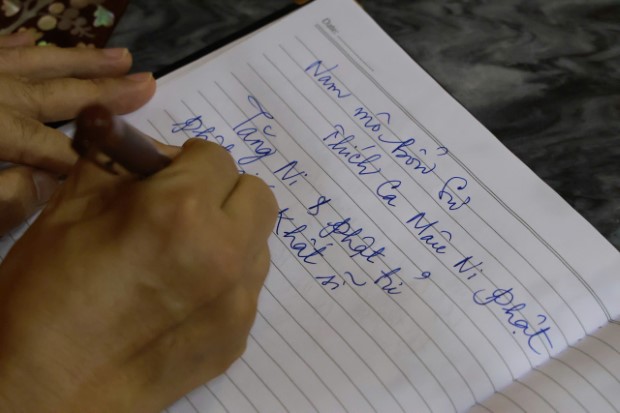 Date:
Nam mô bổn sư
Thích Ca Mâu Ni Phật
Tăng Ni & Phật tử
Khất sĩ